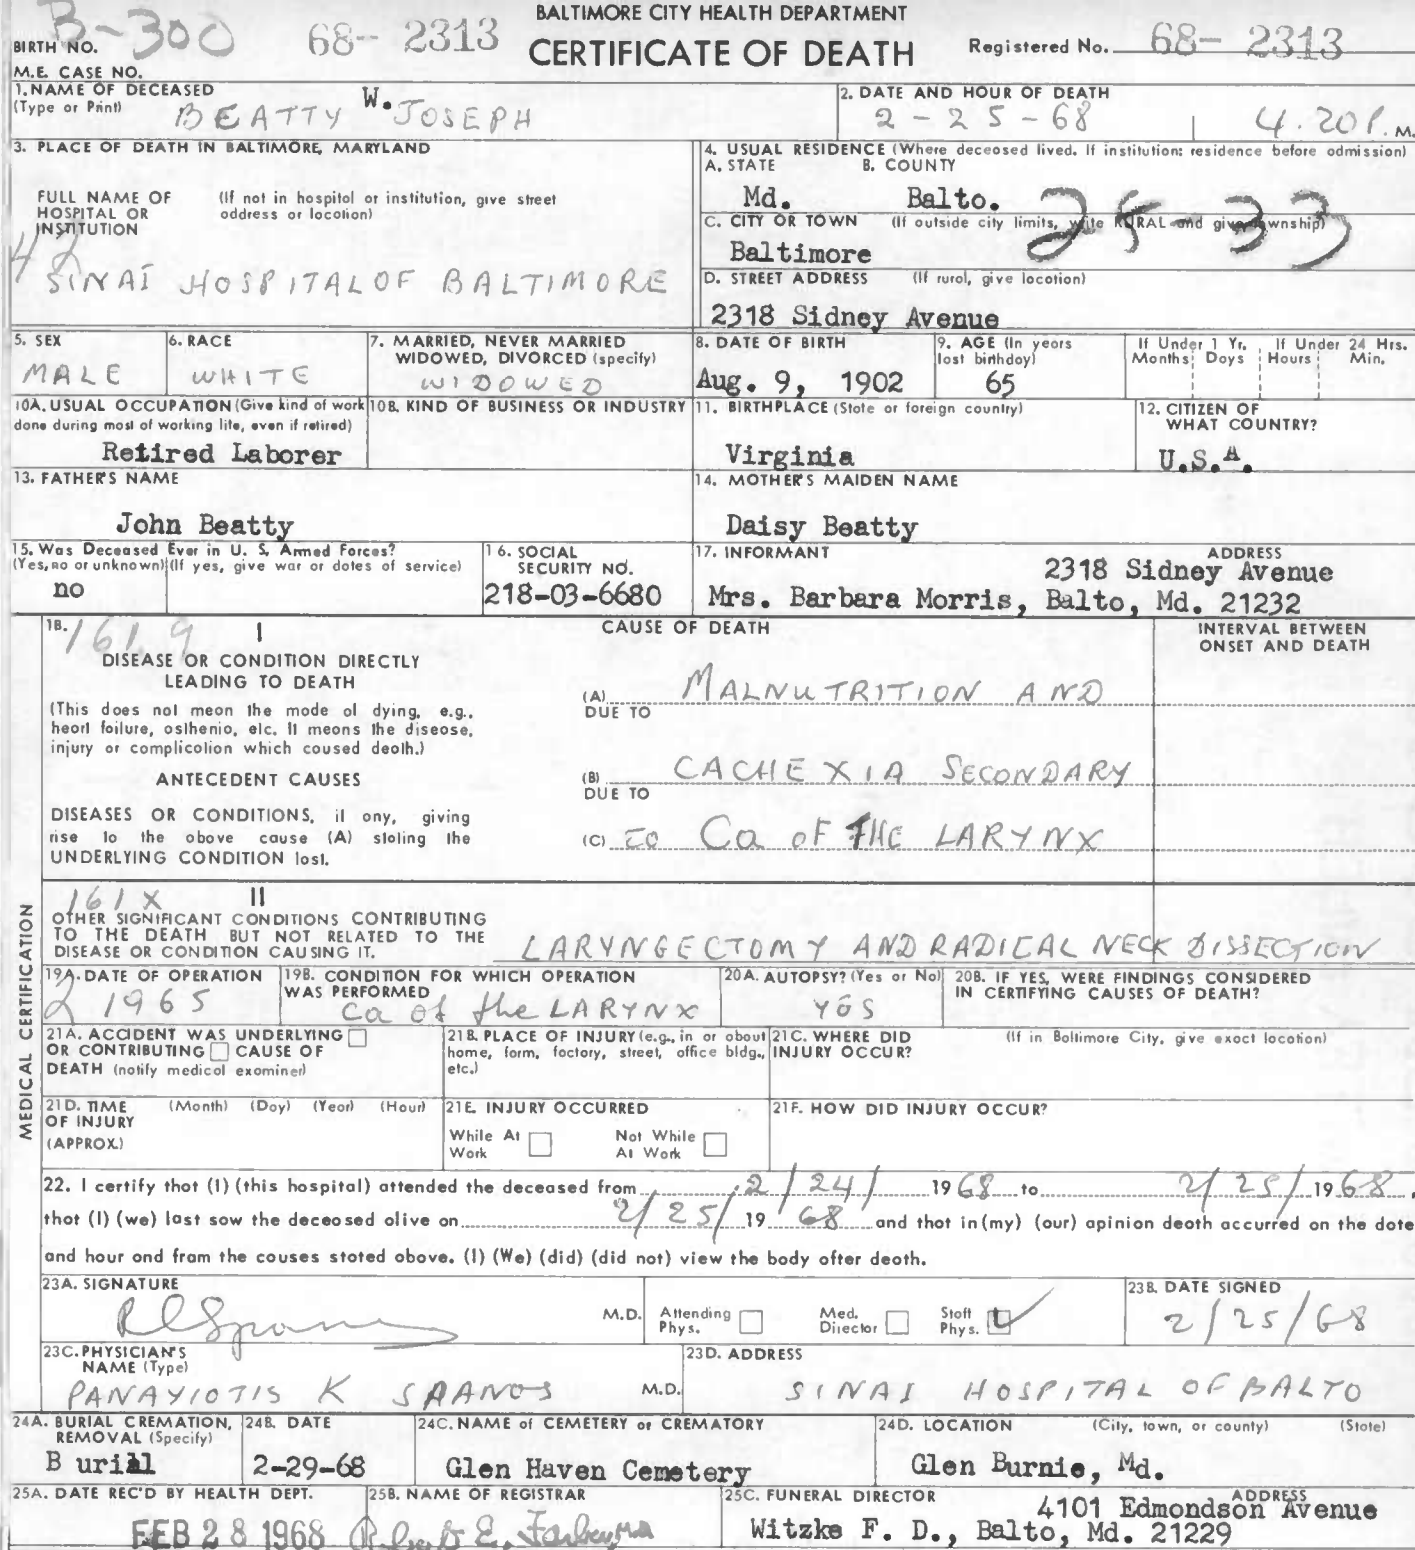 BALTIMORE CITY HEALTH DEPARTMENT
B-300 68- 2313 CERTIFICATE OF DEATH Registered No. 68- 2313
BIRTH NO.
M.E. CASE NO.
1. NAME OF DECEASED (Type or Print) BEATTY W. JOSEPH
2. DATE AND HOUR OF DEATH 2-25-68 4.20P.M.
3. PLACE OF DEATH IN BALTIMORE, MARYLAND
FULL NAME OF HOSPITAL OR INSTITUTION (If not in hospital or institution, give street address or location)
42
SINAI HOSPITAL OF BALTIMORE
4. USUAL RESIDENCE (Where deceased lived. If institution: residence before admission)
A. STATE B. COUNTY
Md. Balto. 25-33
C. CITY OR TOWN (If outside city limits, write RURAL and give township)
Baltimore
D. STREET ADDRESS (If rural, give location)
2318 Sidney Avenue
5. SEX MALE
6. RACE WHITE
7. MARRIED, NEVER MARRIED WIDOWED, DIVORCED (specify) WIDOWED
8. DATE OF BIRTH Aug. 9, 1902
9. AGE (In years last birthday) 65
If Under 1 Yr. Months Days
If Under 24 Hrs. Hours Min.
10A. USUAL OCCUPATION (Give kind of work done during most of working life, even if retired) Retired Laborer
10B. KIND OF BUSINESS OR INDUSTRY
11. BIRTHPLACE (State or foreign country) Virginia
12. CITIZEN OF WHAT COUNTRY? U.S.A.
13. FATHER'S NAME John Beatty
14. MOTHER'S MAIDEN NAME Daisy Beatty
15. Was Deceased Ever in U. S. Armed Forces? (Yes, no or unknown) (If yes, give war or dates of service) no
16. SOCIAL SECURITY NO. 218-03-6680
17. INFORMANT ADDRESS
2318 Sidney Avenue
Mrs. Barbara Morris, Balto, Md. 21232
18. 161.9 I CAUSE OF DEATH INTERVAL BETWEEN ONSET AND DEATH
DISEASE OR CONDITION DIRECTLY LEADING TO DEATH
(This does not mean the mode of dying, e.g., heart failure, asthenia, etc. It means the disease, injury or complication which caused death.)
(A) MALNUTRITION AND
DUE TO
ANTECEDENT CAUSES
(B) CACHEXIA SECONDARY
DUE TO
DISEASES OR CONDITIONS, if any, giving rise to the above cause (A) stating the UNDERLYING CONDITION last.
(C) TO Ca OF THE LARYNX
MEDICAL CERTIFICATION
161X II
OTHER SIGNIFICANT CONDITIONS CONTRIBUTING TO THE DEATH BUT NOT RELATED TO THE DISEASE OR CONDITION CAUSING IT.
LARYNGECTOMY AND RADICAL NECK DISSECTION
19A. DATE OF OPERATION 1965
19B. CONDITION FOR WHICH OPERATION WAS PERFORMED Ca of the LARYNX
20A. AUTOPSY? (Yes or No) YES
20B. IF YES, WERE FINDINGS CONSIDERED IN CERTIFYING CAUSES OF DEATH?
21A. ACCIDENT WAS UNDERLYING OR CONTRIBUTING CAUSE OF DEATH (notify medical examiner)
21B. PLACE OF INJURY (e.g., in or about home, farm, factory, street, office bldg., etc.)
21C. WHERE DID INJURY OCCUR? (If in Baltimore City, give exact location)
21D. TIME OF INJURY (APPROX.) (Month) (Day) (Year) (Hour)
21E. INJURY OCCURRED
While At Work Not While At Work
21F. HOW DID INJURY OCCUR?
22. I certify that (I) (this hospital) attended the deceased from 2/24/ 1968 to 2/25/ 1968,
that (I) (we) last saw the deceased alive on 2/25/ 19 68 and that in (my) (our) opinion death accurred on the date
and hour and from the causes stated above. (I) (We) (did) (did not) view the body after death.
23A. SIGNATURE M.D.
Attending Phys. Med. Director Staff Phys.
23B. DATE SIGNED 2/25/68
23C. PHYSICIAN'S NAME (Type) PANAYIOTIS K SPANOS M.D.
23D. ADDRESS SINAI HOSPITAL OF BALTO
24A. BURIAL CREMATION, REMOVAL (Specify) Burial
24B. DATE 2-29-68
24C. NAME of CEMETERY or CREMATORY Glen Haven Cemetery
24D. LOCATION (City, town, or county) (State) Glen Burnie, Md.
25A. DATE REC'D BY HEALTH DEPT. FEB 28 1968
25B. NAME OF REGISTRAR Robert E. Farber, MD
25C. FUNERAL DIRECTOR ADDRESS
4101 Edmondson Avenue
Witzke F. D., Balto, Md. 21229